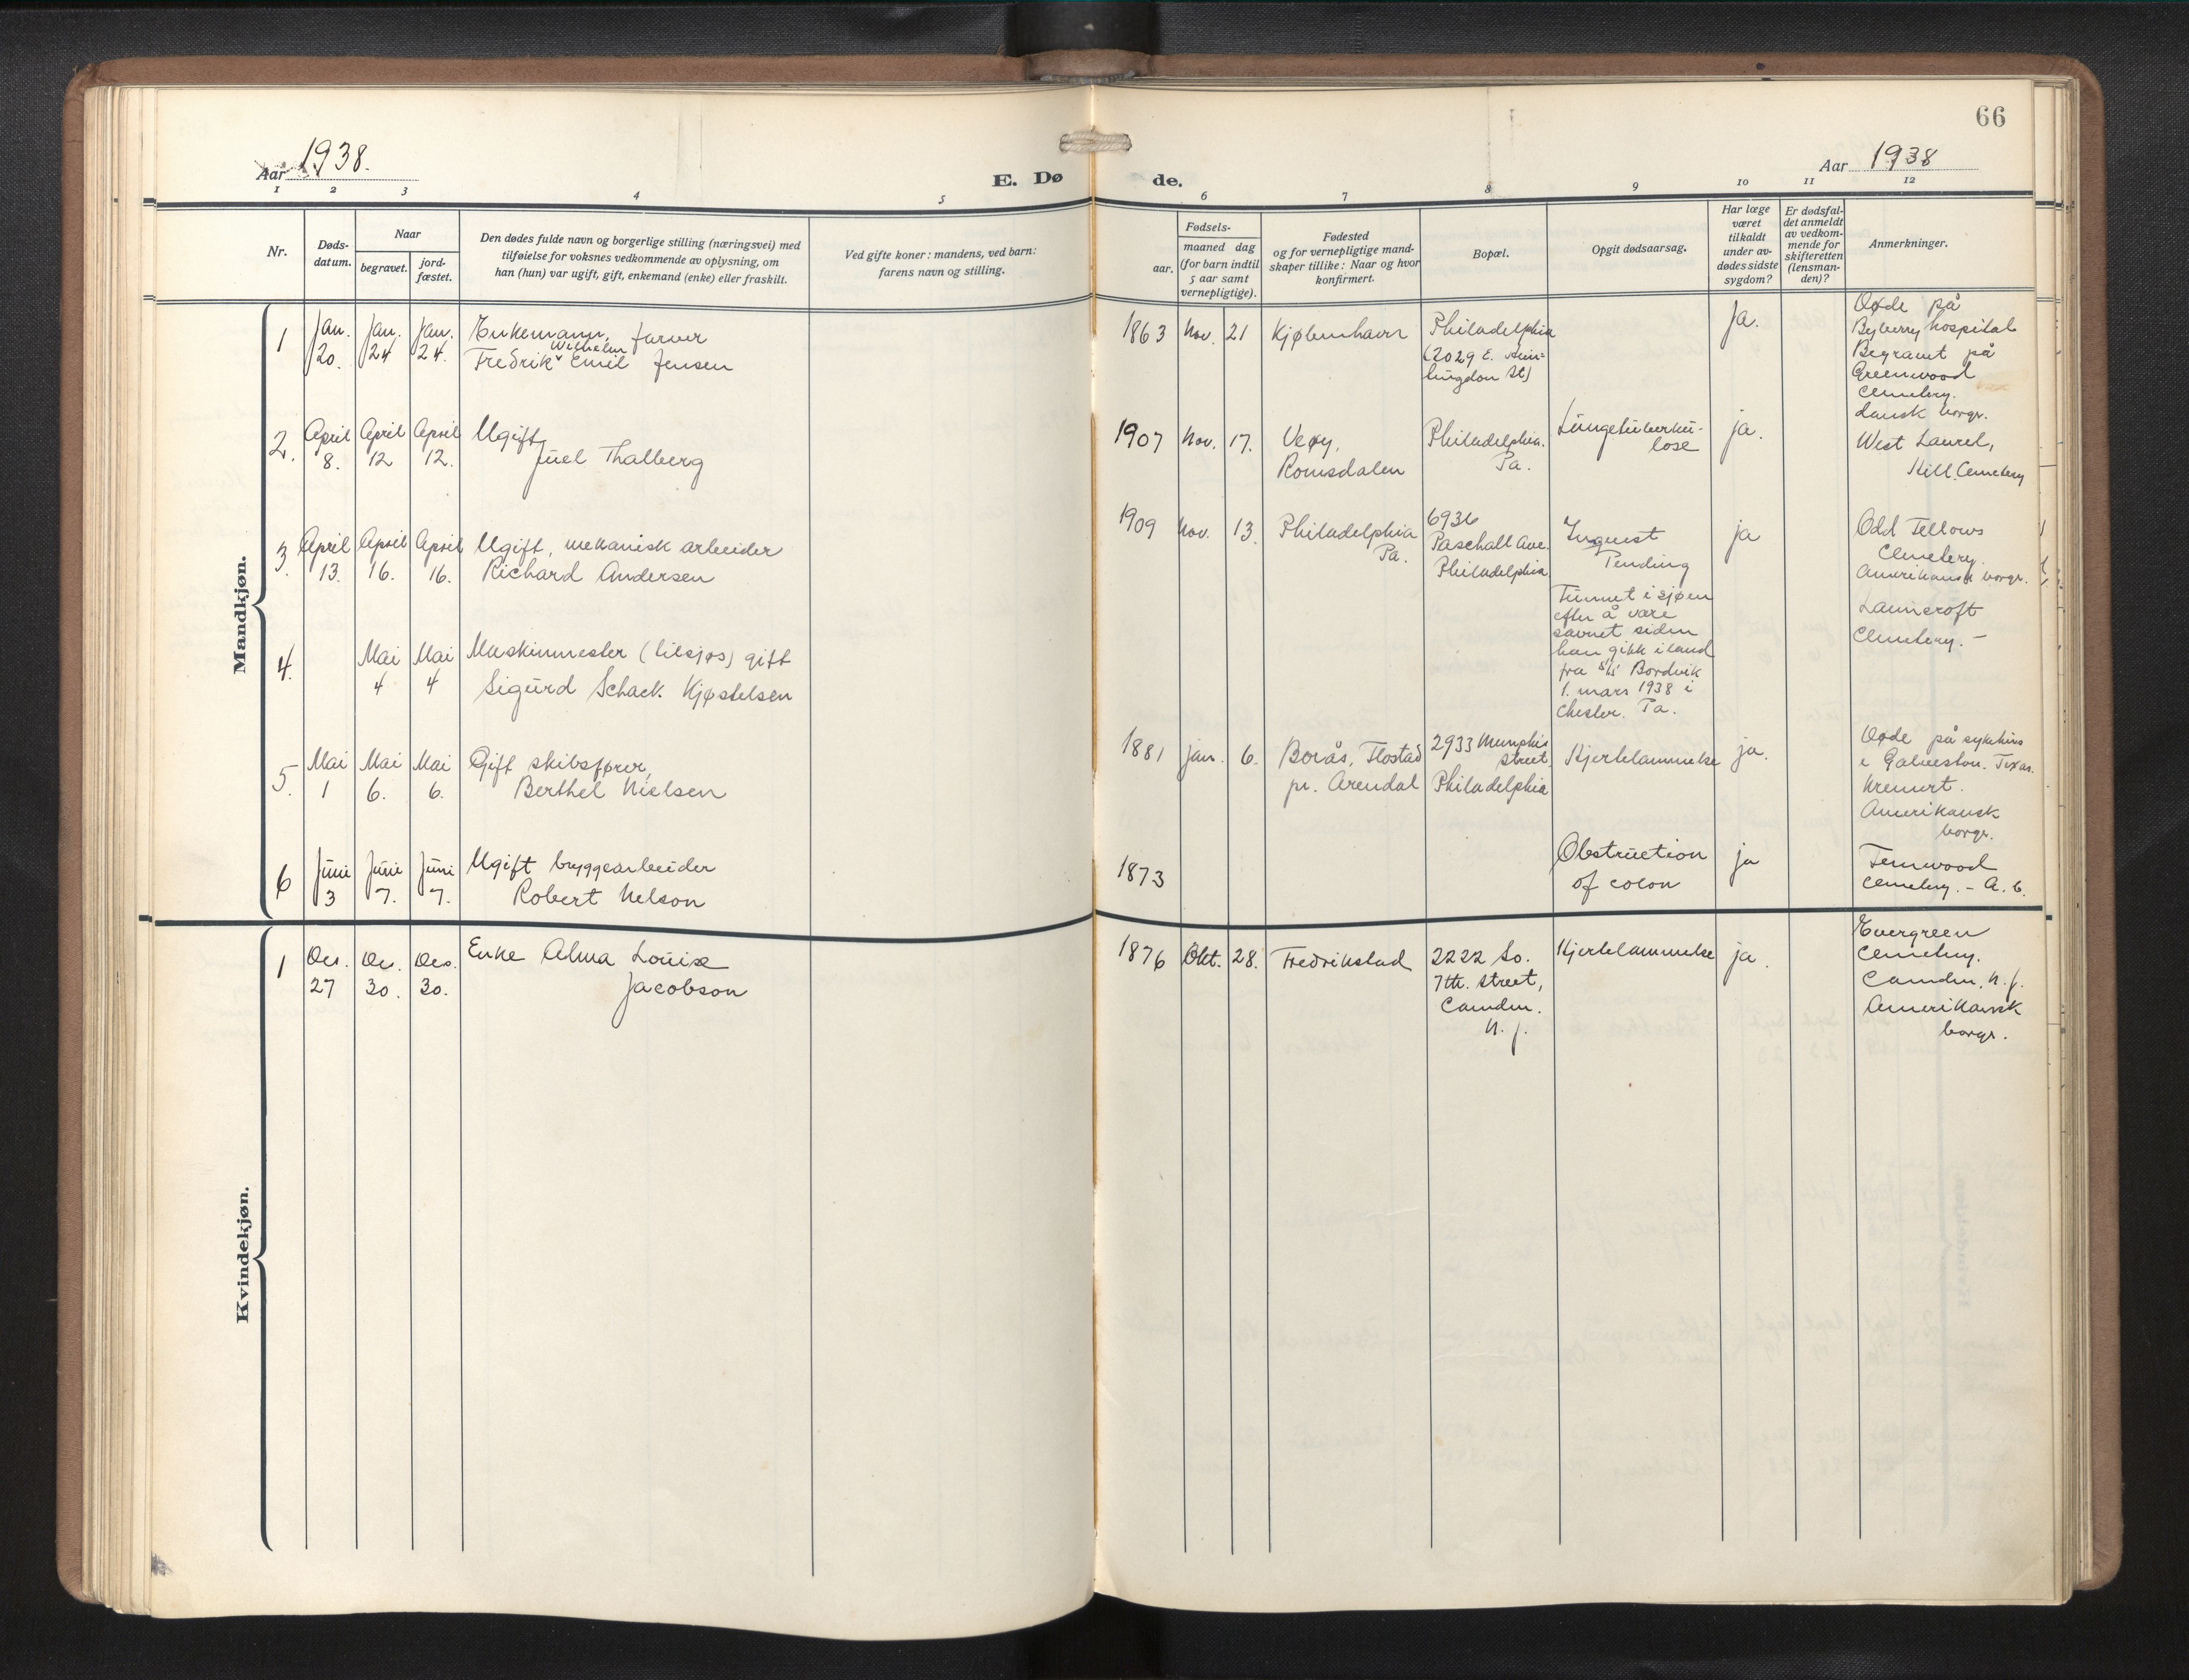 66
Aar 1938.
E. Dø de.
Aar 1938
1 2 3 4 5 6 7 8 9 10 11 12
Nr.
Døds-
datum.
Naar
begravet.
jord-
fæstet.
Den dødes fulde navn og borgerlige stilling (næringsvei) med
tilføielse for voksnes vedkommende av oplysning, om
han (hun) var ugift, gift, enkemand (enke) eller fraskilt.
Ved gifte koner: mandens, ved barn:
farens navn og stilling.
Fødsels-
aar.
maaned dag
(for barn indtil
5 aar samt
vernepligtige).
Fødested
og for vernepligtige mand-
skaper tillike: Naar og hvor
konfirmert.
Bopæl.
Opgit dødsaarsag.
Har læge
været
tilkaldt
under av-
dødes sidste
sygdom?
Er dødsfal-
det anmeldt
av vedkom-
mende for
skifteretten
(lensman-
den)?
Anmerkninger.
Mandkjøn.
1
Jan.
20.
Jan.
24
Jan.
24.
Enkemann, farver
Wilhelm
Fredrik Emil Jensen
1863 Nov. 21
Kjøbenhavn
Philadelphia
(2029 E.
St)
Ja.
Døde på
Byberry hospital
Begravet på
Greenwood
Cemetery.
dansk borgr.
2.
April
8.
April
12
April
12.
Ugift
Juel Thalberg
1907 Nov. 17.
Veøy,
Romsdalen
Philadelphia.
Pa.
Lungetuberku-
lose
ja.
West Laurel,
Hill. Cemetery
3.
April
13.
April
16.
April
16.
Ugift, mekanisk arbeider
Richard Andersen
1909 Nov. 13.
Philadelphia
Pa.
6936
Paschall Ave.
Philadelphia
Inquest
Pending
ja
Odd Fellows
Cemetery.
Amerikansk borgr.
4.
Mai
4
Mai
4
Maskinmester (tilsjøs) gift
Sigurd Schack Kjøstelsen
Funnet i sjøen
efter å være
savnet siden
han gikk i land
fra S/S Bordvik
1. mars 1938 i
Chester. Pa.
Lawncroft
Cemetery. -
5.
Mai
1
Mai
6.
Mai
6.
Gift skibsfører,
Berthel Nielsen
1881 jan. 6.
Borås, Flostad
pr. Arendal
2933 Memphis
street.
Philadelphia
Hjertelammelse
ja.
Døde på sykehus
i Galveston. Texas.
Kremert.
Amerikansk
borgr.
6
Juni
3
Juni
7.
Juni
7.
Ugift bryggearbeider
Robert Nelson
1873
Obstruction
of colon
ja
Fernwood
Cemetery. - A. b.
Kvindekjøn.
1
Des.
27
Des.
30.
Des.
30.
Enke Alma Louise
Jacobson
1876 Okt. 28.
Fredrikstad
2222 So.
7th. street,
Camden.
N. J.
Hjertelammelse
ja.
Evergreen
Cemetery.
Camden, N. J.
Amerikansk
borgr.